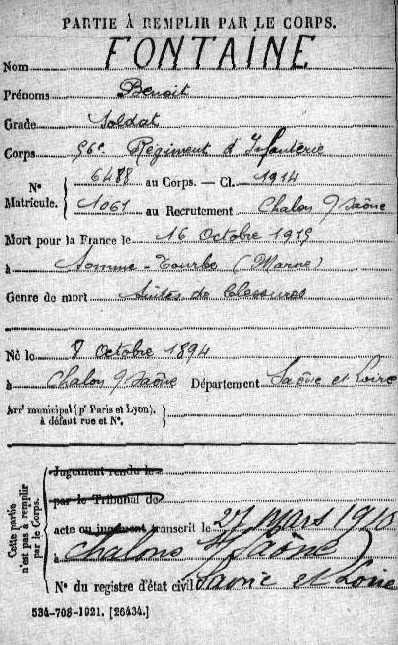 PARTIE À REMPLIR PAR LE CORPS.
Nom FONTAINE
Prénoms Benoit
Grade Soldat
Corps 56e Régiment d'Infanterie
N° Matricule. 6488 au Corps. — Cl. 1914
1061 au Recrutement Chalon s/Saône
Mort pour la France le 16 Octobre 1915
à Somme-Tourbe (Marne)
Genre de mort Suites de blessures
Né le 8 Octobre 1894
à Chalon s/Saône Département Saône et Loire
Arrt municipal (pr Paris et Lyon),
à défaut rue et N°.
Cette partie n'est pas à remplir par le Corps.
Jugement rendu le
par le Tribunal de
acte ou jugement transcrit le 27 mars 1916
à Chalons s/Saône
N° du registre d'état civil Saône et Loire
534-708-1921. [26434.]